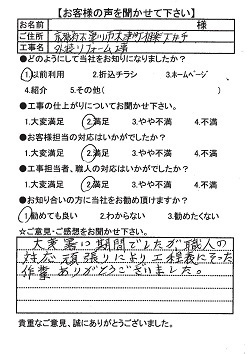 【お客様の声を聞かせて下さい】
お名前 様
ご住所 京都府木津川市木津町
工事名 外装リフォーム工事
●どのようにして当社をお知りになりましたか？
1.以前利用 2.折込チラシ 3.ホームページ
4.紹介 5.その他( )
●工事の仕上がりについてお聞かせ下さい。
1.大変満足 2.満足 3.やや不満 4.不満
●お客様担当の対応はいかがでしたか？
1.大変満足 2.満足 3.やや不満 4.不満
●工事担当者、職人の対応はいかがでしたか？
1.大変満足 2.満足 3.やや不満 4.不満
●お知り合いの方に当社をお勧め頂けますか？
1.勧めても良い 2.わからない 3.勧めたくない
☆ご意見・ご感想をお聞かせ下さい。
大変暑い期間でしたが職人の
対応 頑張りにより工程表にそった
作業ありがとうございました。
貴重なご意見、誠にありがとうございます。